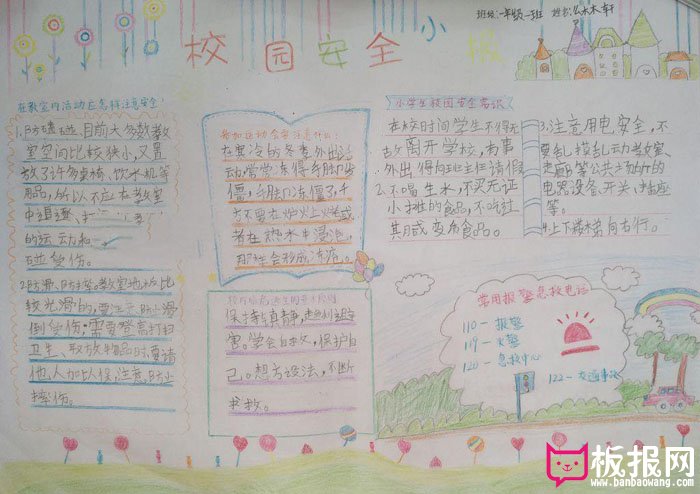 校园安全小报
班级:一年级一班 姓名:
在教室内活动应怎样注意安全:
1.防磕碰,目前大多数教
室空间比较狭小,又置
放了许多桌椅、饮水机等
用品,所以不应在教室
中追逐、
的运动和
碰受伤。
2.防滑、防摔,教室地板比
较光滑的,要注意防止滑
倒受伤;需要登高打扫
卫生、取放物品时,要请
他人加以保护,注意防止
摔伤。
参加运动会要注意什么:
在寒冷的冬季外出活
动,常常冻得手脚发
僵,手脚冻僵了,千
万不要在炉火上烘或
者在热水中浸泡,
那样会形成冻疮。
保持镇静,趋利避
害。学会自救,保护自
己。想方设法,不断
求救。
小学生校园安全常识
在校时间学生不得无
故离开学校,有事
外出得向班主任请假
2.不喝生水,不买无证
小摊的食品,不吃过
期或变质食品。
3.注意用电安全,不
要乱摸乱动教室、
走廊等公共场所的
电器设备、开关、插座
等。
4.上下楼梯靠右行。
常用报警急救电话
110-报警
119-火警
120-急救中心
122-交通事故
板报网
www.banbaowang.com